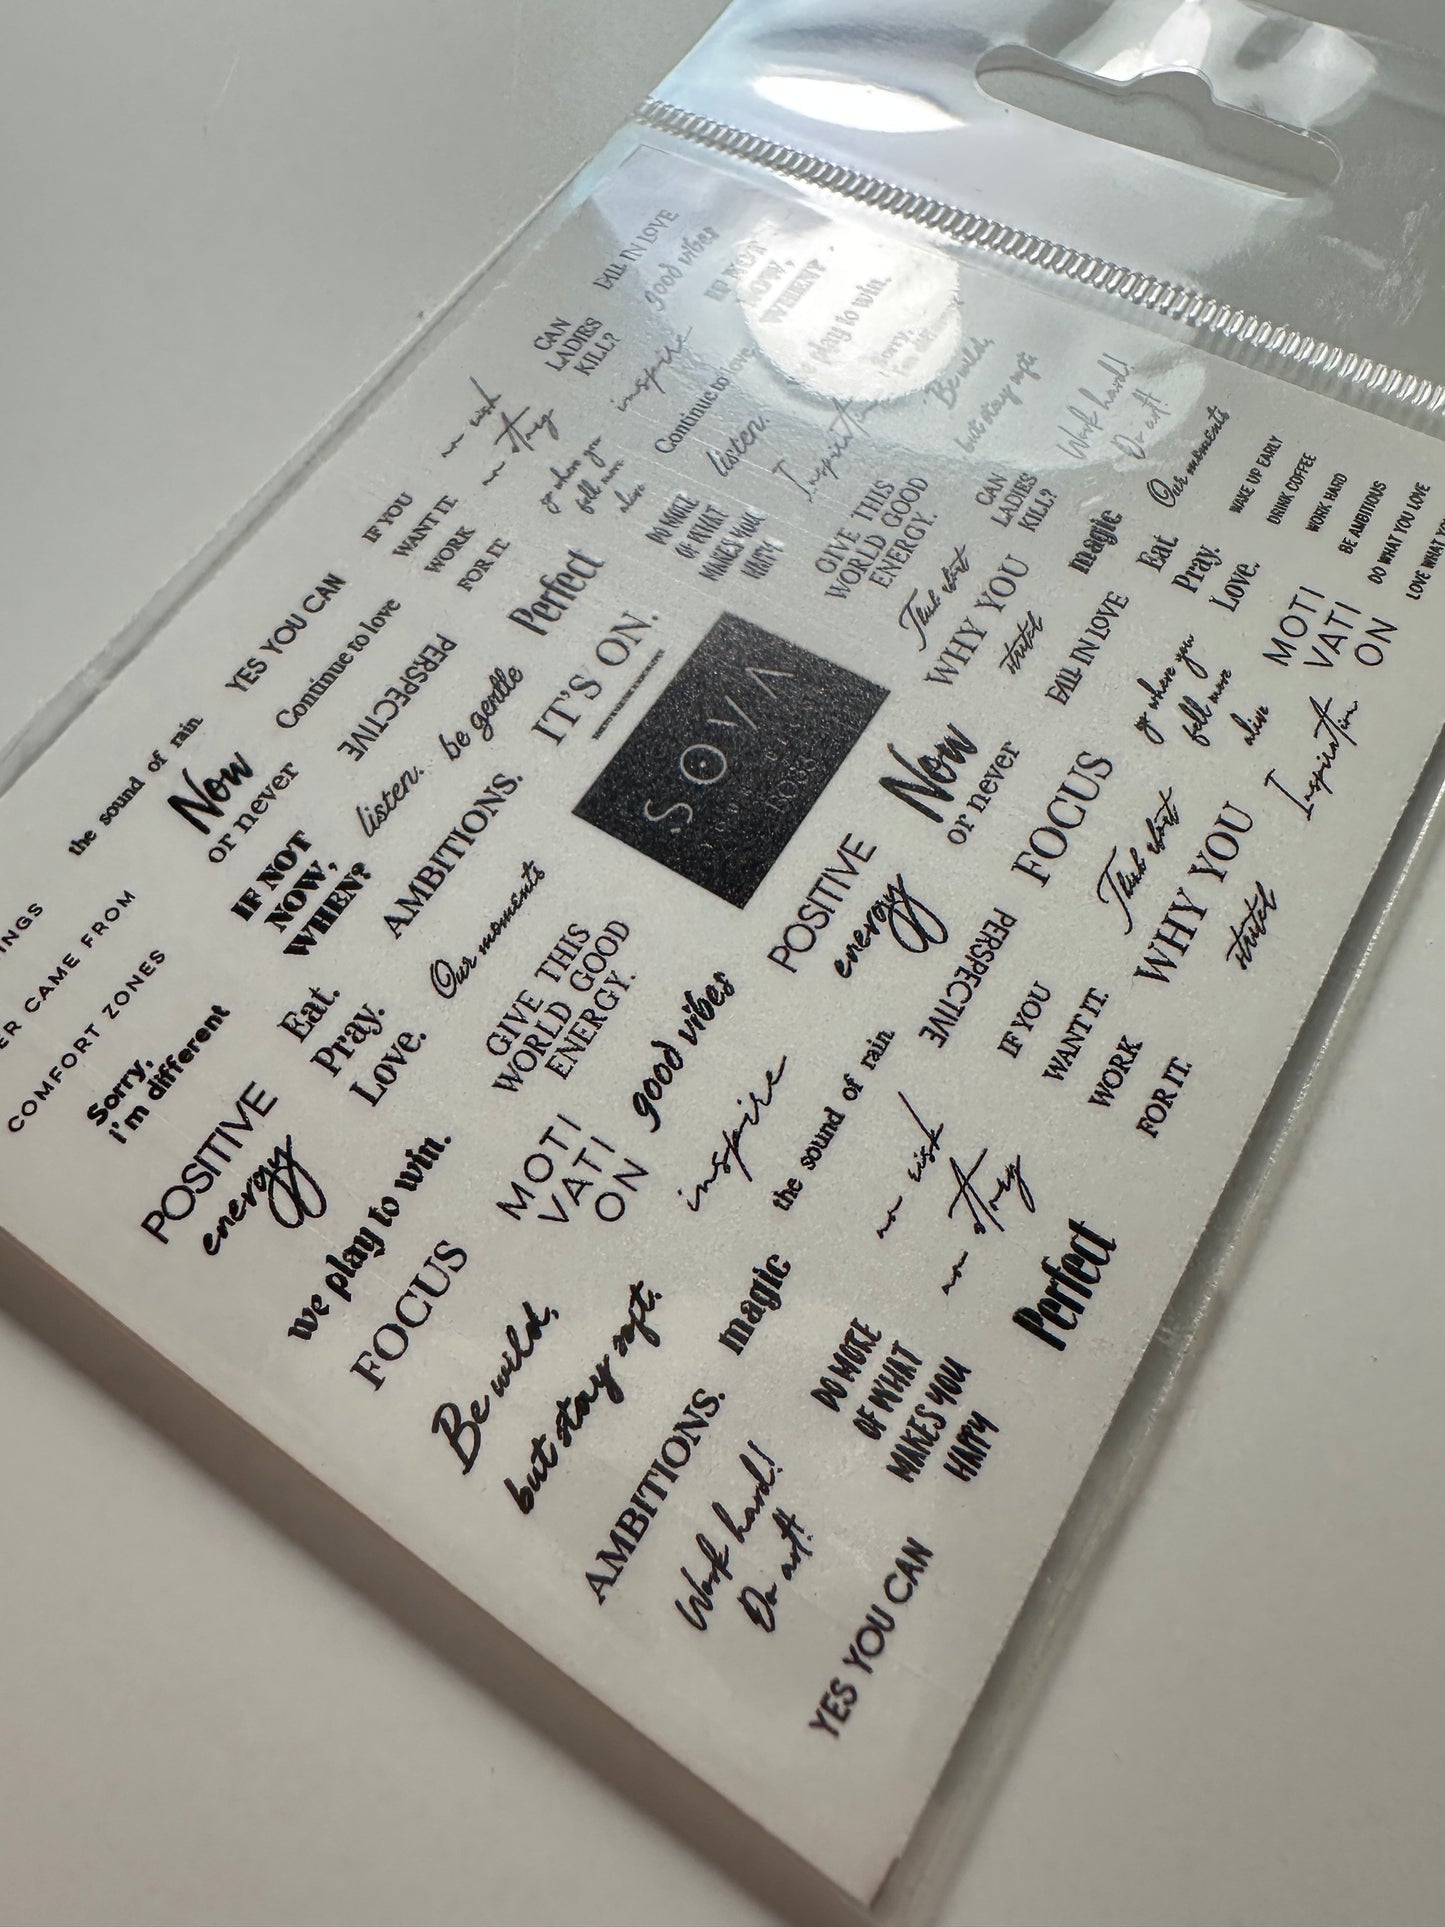 FALL IN LOVE
good vibes
IF NOT
NOW,
WHEN?
play to win.
Sorry,
CAN
LADIES
KILL?
inspire
Continue to love
Be wild,
but stay soft.
Work hard!
Do art!
Our moments
WAKE UP EARLY
DRINK COFFEE
WORK HARD
BE AMBITIOUS
DO WHAT YOU LOVE
LOVE WHAT
no risk
no story
go where you
fell more
alive
listen.
Inspiration
CAN
LADIES
KILL?
magic
Eat.
Pray.
Love.
MOTI
VATI
ON
IF YOU
WANT IT.
WORK
FOR IT.
DO MORE
OF WHAT
MAKES YOU
HAPPY
GIVE THIS
WORLD GOOD
ENERGY.
Think about
WHY YOU
started
FALL IN LOVE
go where you
fell more
alive
Inspiration
YES YOU CAN
Continue to love
PERSPECTIVE
be gentle
Perfect
IT'S ON.
SOVA
BOSS
Now
or never
FOCUS
Think about
WHY YOU
started
the sound of rain
Now
or never
listen.
AMBITIONS.
POSITIVE
energy
PERSPECTIVE
IF YOU
WANT IT.
WORK
FOR IT.
INGS
ER CAME FROM
COMFORT ZONES
IF NOT
NOW,
WHEN?
Our moments
GIVE THIS
WORLD GOOD
ENERGY.
good vibes
the sound of rain
no risk
no story
Sorry,
i'm different
Eat.
Pray.
Love.
MOTI
VATI
ON
inspire
Perfect
POSITIVE
energy
we play to win.
FOCUS
magic
DO MORE
OF WHAT
MAKES YOU
HAPPY
Be wild,
but stay soft.
AMBITIONS.
Work hard!
Do art!
YES YOU CAN